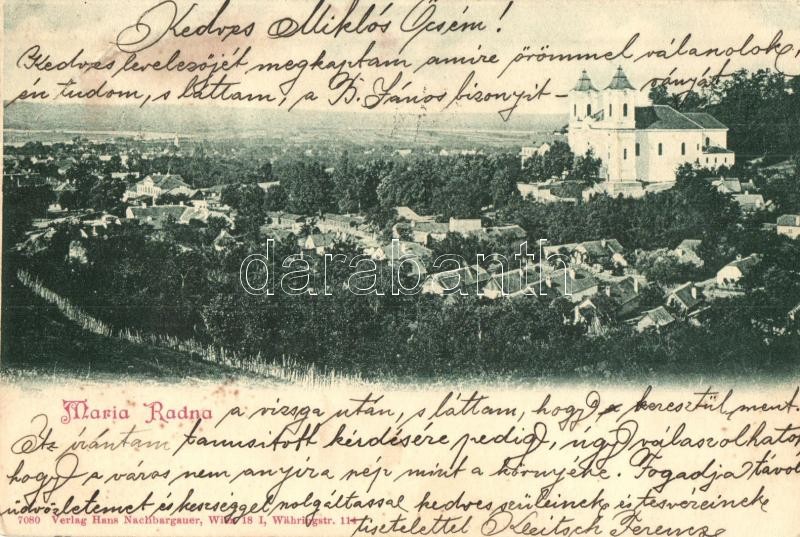 Kedves Miklós Öcsém!
Kedves levelezőjét megkaptam amire örömmel válaszolok,
én tudom, s láttam, a B. János bizonyit-
ványát
darabanth
Maria Radna
a vizsga után, s láttam, hogy keresztül ment.
Az irántam tanusitott kérdésére pedig, úgy válaszolhatok
hogy a város nem annyira nép mint a környéke. Fogadja távol
üdvözletemet és készséggel szolgáltassal kedves szüleinek és tesvéreinek
7080 Verlag Hans Nachbargauer, Wien 18 I, Währingstr. 114
tisztelettel Kleitsch Ferencz